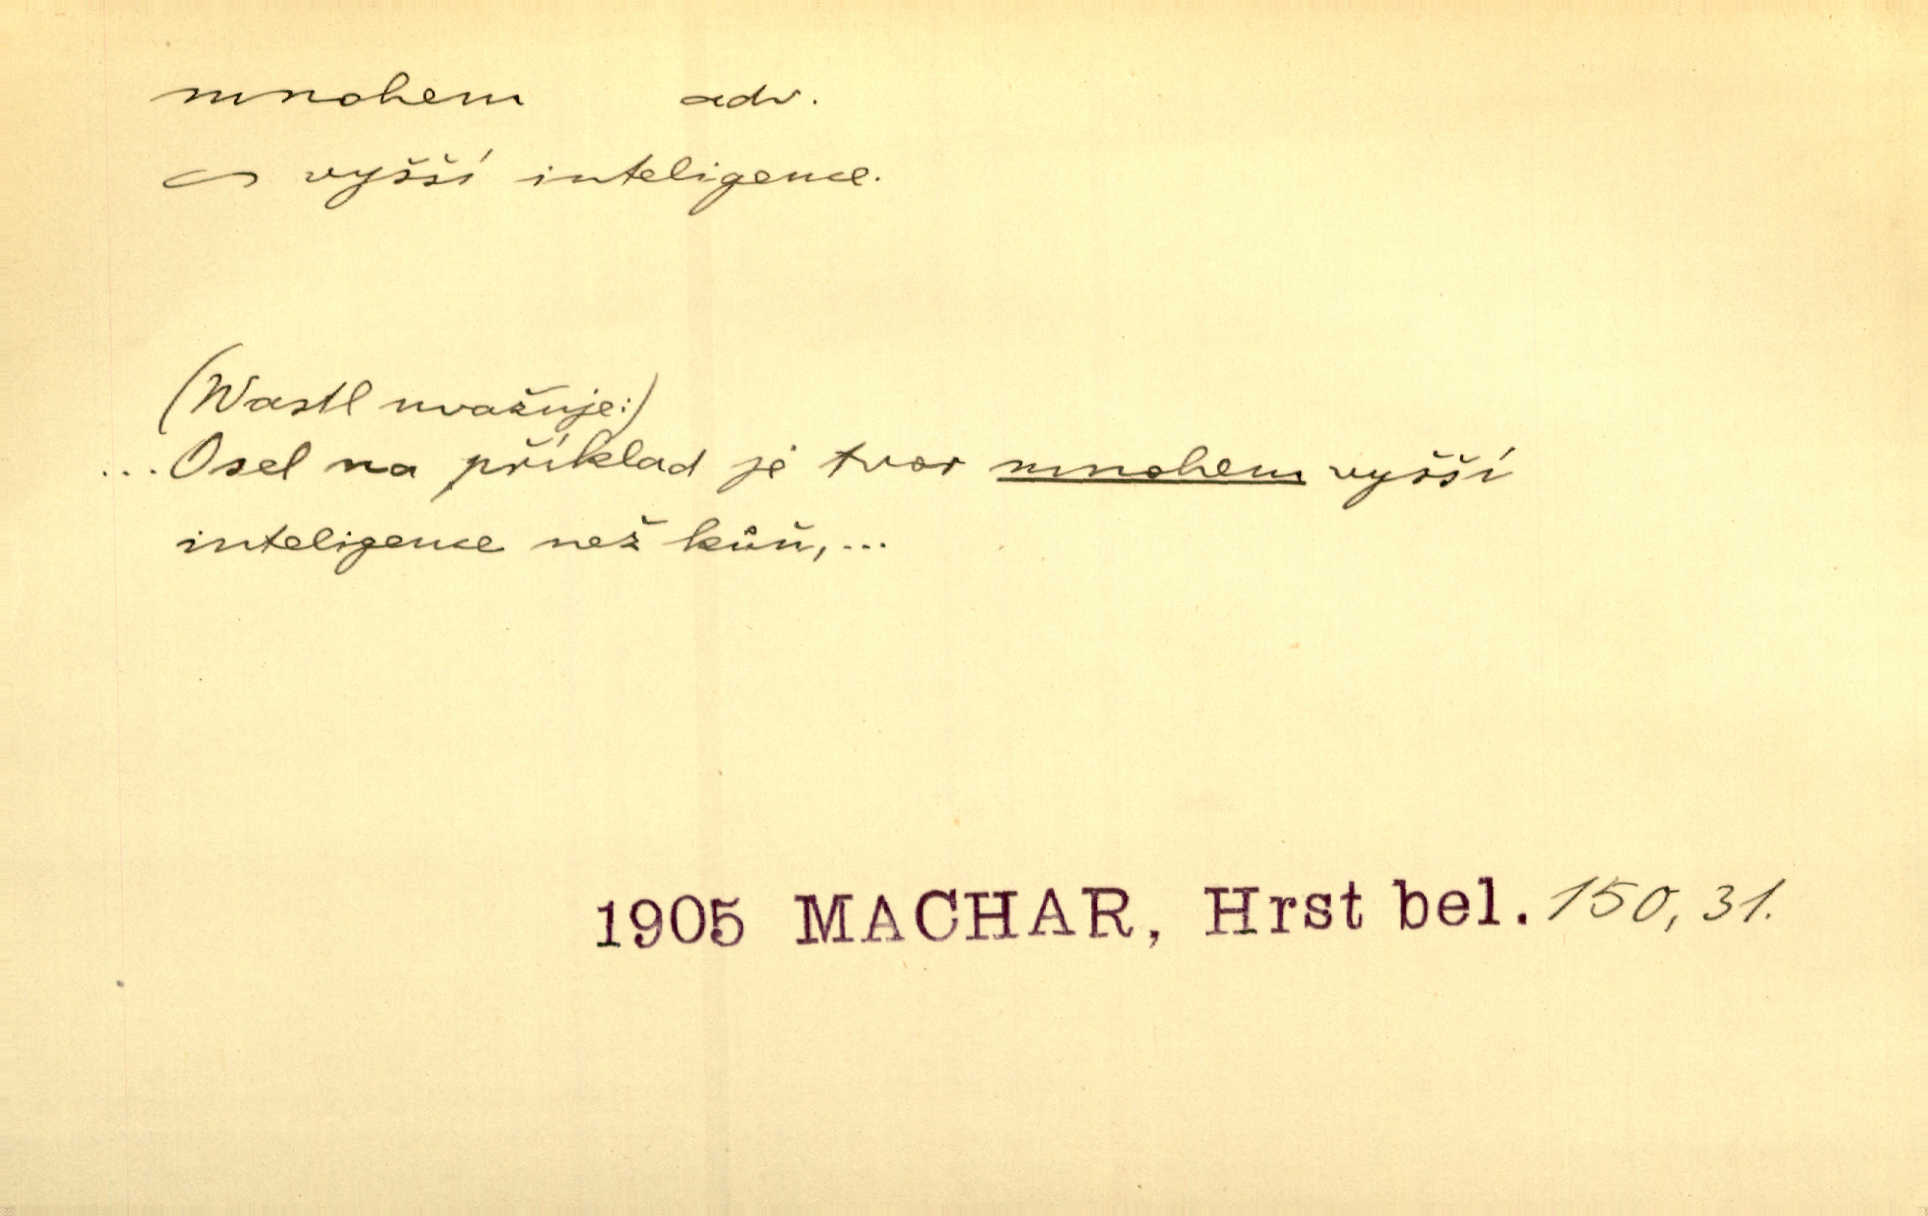 mnohem adv.
~ vyšší inteligence.
(Wastl uvažuje:)
...Osel na příklad je tvor mnohem vyšší
inteligence než kůň,...
1905 MACHAR, Hrst bel. 150,31.